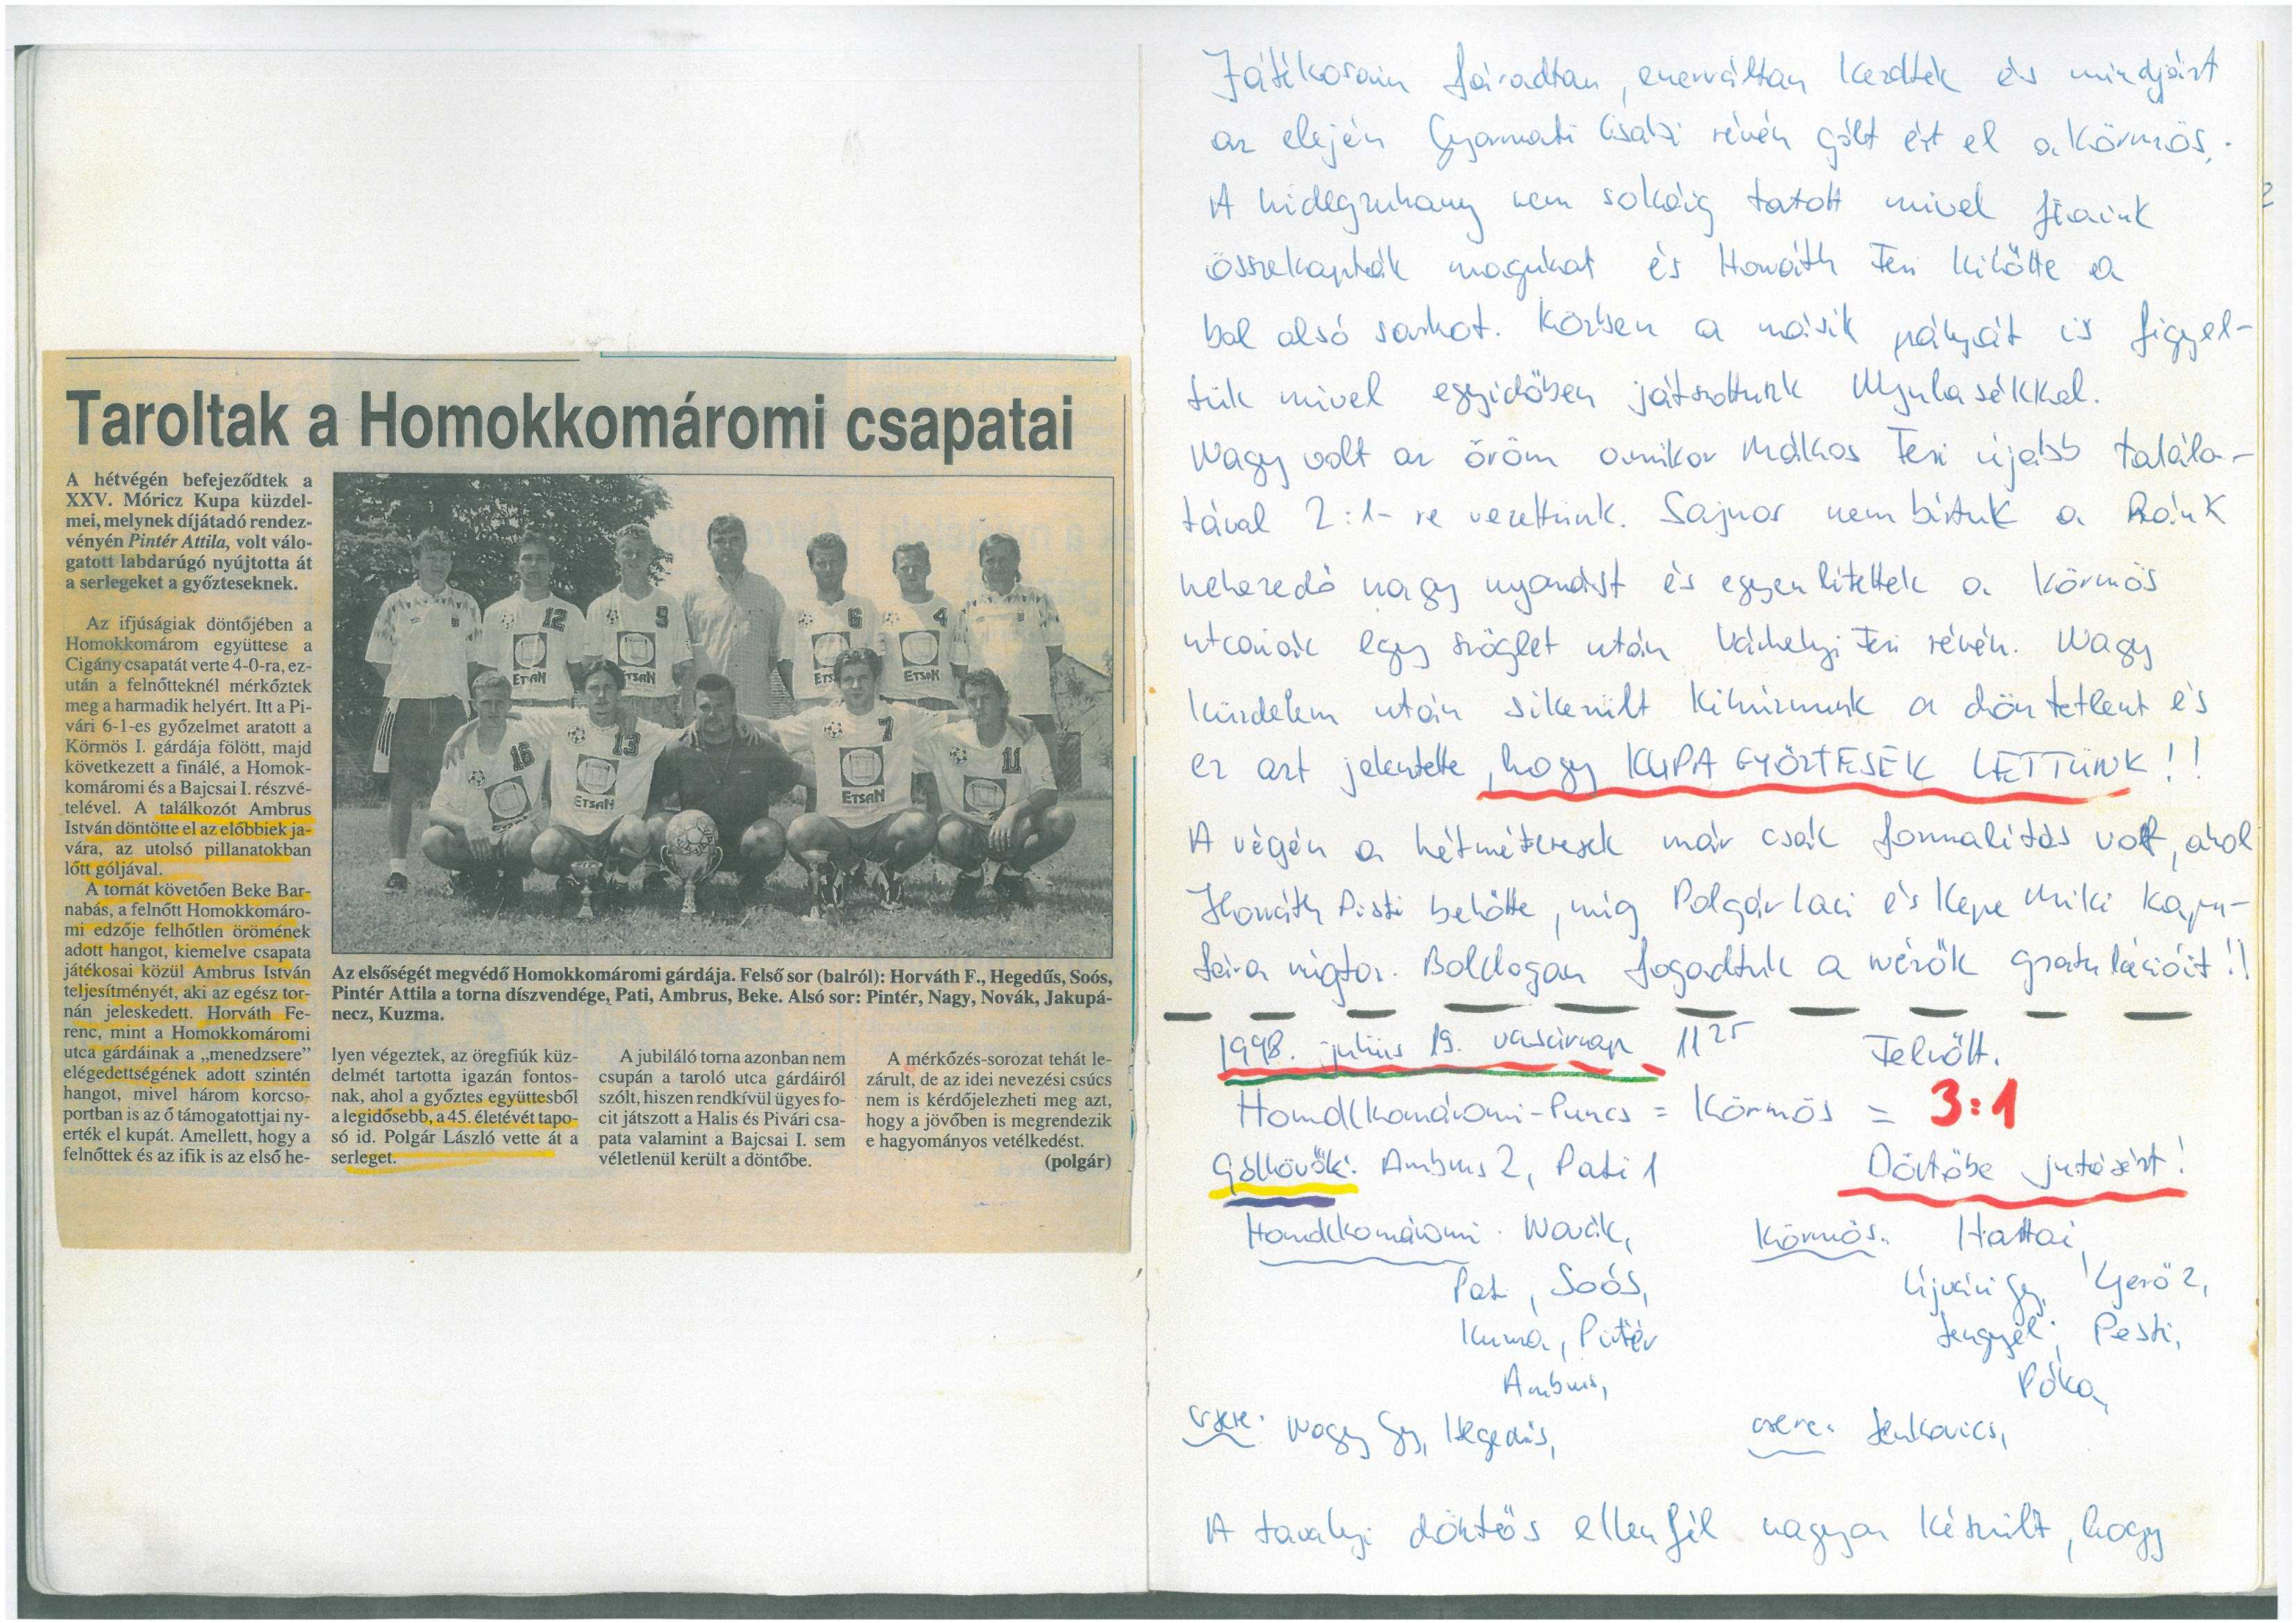 Taroltak a Homokkomáromi csapatai
A hétvégén befejeződtek a
XXV. Móricz Kupa küzdel-
mei, melynek díjátadó rendez-
vényén Pintér Attila, volt válo-
gatott labdarúgó nyújtotta át
a serlegeket a győzteseknek.
Az ifjúságiak döntőjében a
Homokkomárom együttese a
Cigány csapatát verte 4-0-ra, ez-
után a felnőtteknél mérkőztek
meg a harmadik helyért. Itt a Pi-
vári 6-1-es győzelmet aratott a
Körmös I. gárdája fölött, majd
következett a finálé, a Homok-
komáromi és a Bajcsai I. részvé-
telével. A találkozót Ambrus
István döntötte el az előbbiek ja-
vára, az utolsó pillanatokban
lőtt góljával.
A tornát követően Beke Bar-
nabás, a felnőtt Homokkomáro-
mi edzője felhőtlen örömének
adott hangot, kiemelve csapata
játékosai közül Ambrus István
teljesítményét, aki az egész tor-
nán jeleskedett. Horváth Fe-
renc, mint a Homokkomáromi
utca gárdáinak a „menedzsere”
elégedettségének adott szintén
hangot, mivel három korcso-
portban is az ő támogatottjai ny-
erték el kupát. Amellett, hogy a
felnőttek és az ifik is az első he-
12
9
6
4
ETSAN
ETSAN
ETSAN
ETSAN
16
13
7
11
ETSAN
ETSAN
Az elsőségét megvédő Homokkomáromi gárdája. Felső sor (balról): Horváth F., Hegedűs, Soós,
Pintér Attila a torna díszvendége, Pati, Ambrus, Beke. Alsó sor: Pintér, Nagy, Novák, Jakupá-
necz, Kuzma.
lyen végeztek, az öregfiúk küz-
delmét tartotta igazán fontos-
nak, ahol a győztes együttesből
a legidősebb, a 45. életévét tapo-
só id. Polgár László vette át a
serleget.
A jubiláló torna azonban nem
csupán a taroló utca gárdáiról
szólt, hiszen rendkívül ügyes fo-
cit játszott a Halis és Pivári csa-
pata valamint a Bajcsai I. sem
véletlenül került a döntőbe.
A mérkőzés-sorozat tehát le-
zárult, de az idei nevezési csúcs
nem is kérdőjelezheti meg azt,
hogy a jövőben is megrendezik
e hagyományos vetélkedést.
(polgár)
Játékosaim fáradtan, enerváltan kezdtek és mindjárt
az elején Gyarmati Csabi révén gólt ért el a Körmös.
A hidegzuhany nem sokáig tartott mivel fiaink
összekapták magukat és Horváth Feri kilőtte a
bal alsó sarkot. Közben a másik pályát is figyel-
tük mivel egyidőben játszottunk Gyulasékkal.
Nagy volt az öröm amikor Málkos Feri újabb talála-
tával 2:1-re vezettünk. Sajnos nem bírtuk a Ránk
nehezedő nagy nyomást és egyenlítettek a Körmös
utcaiak egy szöglet után Várhelyi Feri révén. Nagy
küzdelem után sikerült kihúznunk a döntetlent és
ez azt jelentette, hogy KUPA GYŐZTESEK LETTÜNK!!
A végén a hétméteresek már csak formalitás volt, ahol
Horváth Pisti belőtte, míg Polgár Laci és Kepe Miki kapu-
fára rúgta. Boldogan fogadtuk a nézők gratulációit!!
1998. július 19. vasárnap 11 25 Felnőtt.
Homokkomáromi-Puncs = Körmös = 3:1
Góllövők: Ambrus 2, Pati 1 Döntőbe jutásért!
Homokkomáromi: Novák, Körmös: Hattai,
Pati, Soós, Újvári Gy, Gerő Z,
Kuzma, Pintér Lengyel, Pesti,
Ambrus, Póka,
csere: Nagy Gy, Hegedűs, csere: Lenkovics,
A tavalyi döntős ellenfél nagyon készült, hogy